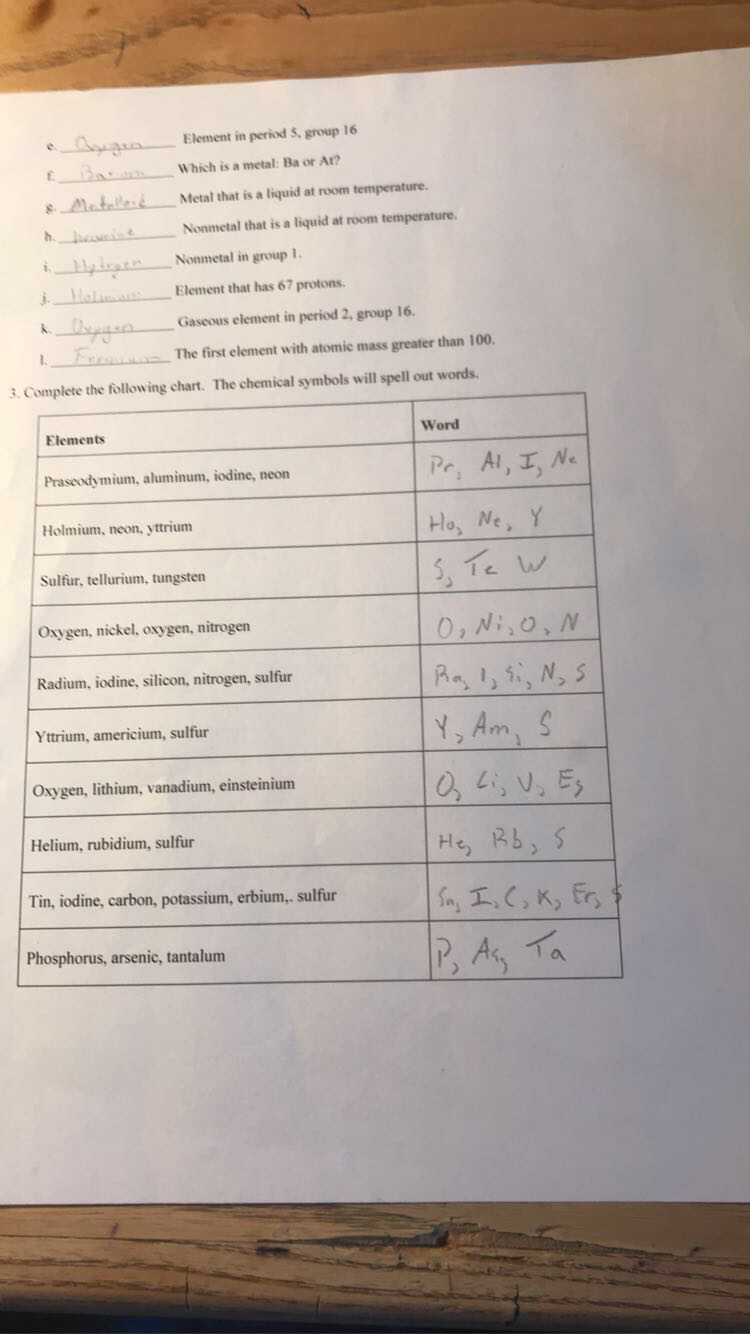 e. Oxygen Element in period 5, group 16
f. Barium Which is a metal: Ba or At?
g. Metalloid Metal that is a liquid at room temperature.
h. Nonmetal that is a liquid at room temperature.
i. Hydrogen Nonmetal in group 1.
j. Holmium Element that has 67 protons.
k. Oxygen Gaseous element in period 2, group 16.
l. Fermium The first element with atomic mass greater than 100.
3. Complete the following chart. The chemical symbols will spell out words.
Elements Word
Praseodymium, aluminum, iodine, neon Pr, Al, I, Ne
Holmium, neon, yttrium Ho, Ne, Y
Sulfur, tellurium, tungsten S, Te W
Oxygen, nickel, oxygen, nitrogen O, Ni, O, N
Radium, iodine, silicon, nitrogen, sulfur Ra, I, Si, N, S
Yttrium, americium, sulfur Y, Am, S
Oxygen, lithium, vanadium, einsteinium O, Li, V, Es
Helium, rubidium, sulfur He, Rb, S
Tin, iodine, carbon, potassium, erbium,. sulfur Sn, I, C, K, Er, S
Phosphorus, arsenic, tantalum P, As, Ta